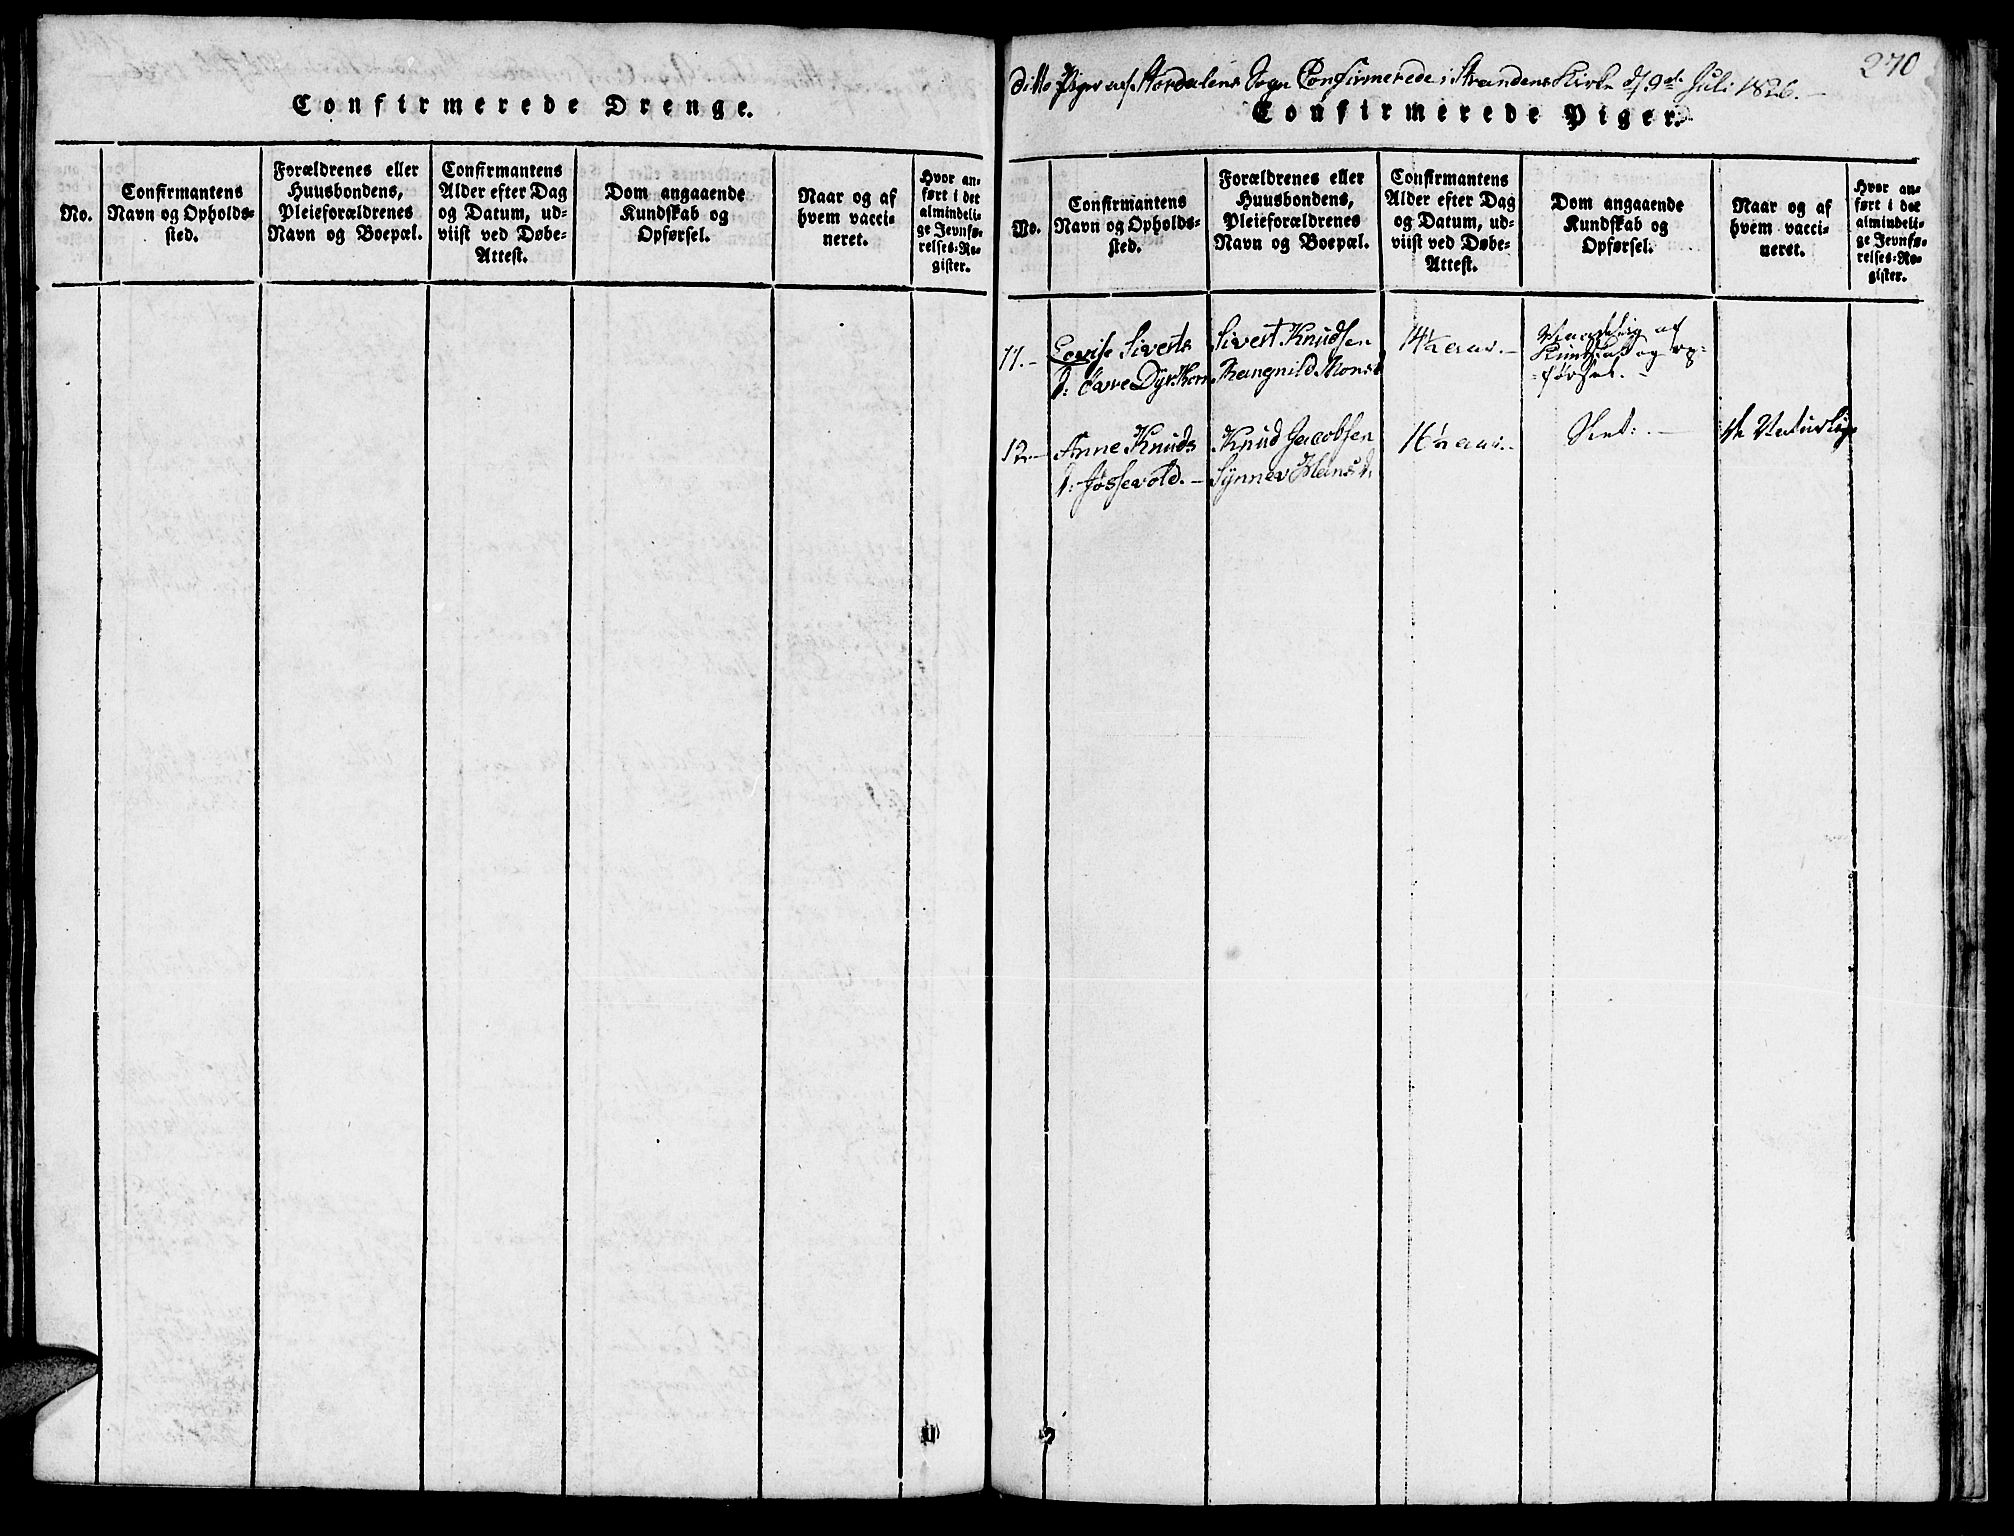 Confirmerede Drenge.
No.
Confirmantens
Navn og Opholds-
sted.
Forældrenes eller
Huusbondens,
Pleieforældrenes
Navn og Boepæl.
Confirmantens
Alder efter Dag
og Datum, ud-
viist ved Døbe-
Attest.
Dom angaaende
Kundskab og
Opførsel.
Naar og af
hvem vacci-
neret.
Hvor an-
ført i det
almindeli-
ge Jevnfø-
relses-Re-
gister.
270
ditto Piger af Stordalens Sogn Confirmerede i Strandens Kirke d. 9de Juli 1826.
Confirmerede Piger.
No.
Confirmantens
Navn og Opholds-
sted.
Forældrenes eller
Huusbondens,
Pleieforældrenes
Navn og Boepæl.
Confirmantens
Alder efter Dag
og Datum, ud-
viist ved Døbe-
Attest.
Dom angaaende
Kundskab og
Opførsel.
Naar og af
hvem vacci-
neret.
Hvor an-
ført i det
almindeli-
ge Jevnfø-
relses-Re-
gister.
11.
Siverts
d: Øvre Dyrkorn
Sivert Knudsen
Rangnild Monsd
14½ aar.
af
Kundskab og op-
førsel.
12.
Anne Knuds
d: Jøssevold.
Knud Jacobsen
Synnev Hansd:
16½ aar.